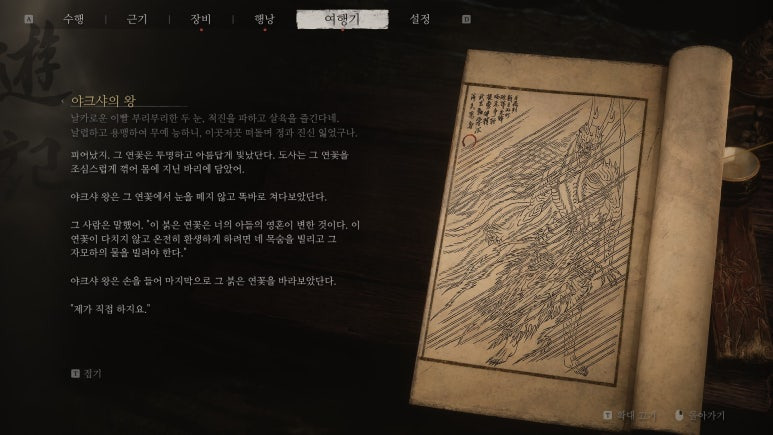 A 수행 근기 장비 행낭 여행기 설정 D
야크샤의 왕
날카로운 이빨 부리부리한 두 눈, 적진을 파하고 살육을 즐긴다네.
날렵하고 용맹하여 무예 능하니, 이곳저곳 떠돌며 정과 진신 잃었구나.
피어났지. 그 연꽃은 투명하고 아름답게 빛났단다. 도사는 그 연꽃을
조심스럽게 꺾어 몸에 지닌 바리에 담았어.
야크샤 왕은 그 연꽃에서 눈을 떼지 않고 똑바로 쳐다보았단다.
그 사람은 말했어. "이 붉은 연꽃은 너의 아들의 영혼이 변한 것이다. 이
연꽃이 다치지 않고 온전히 환생하게 하려면 네 목숨을 빌리고 그
자모하의 물을 빌려야 한다."
야크샤 왕은 손을 들어 마지막으로 그 붉은 연꽃을 바라보았단다.
"제가 직접 하지요."
T 접기
T 확대 끄기 돌아가기